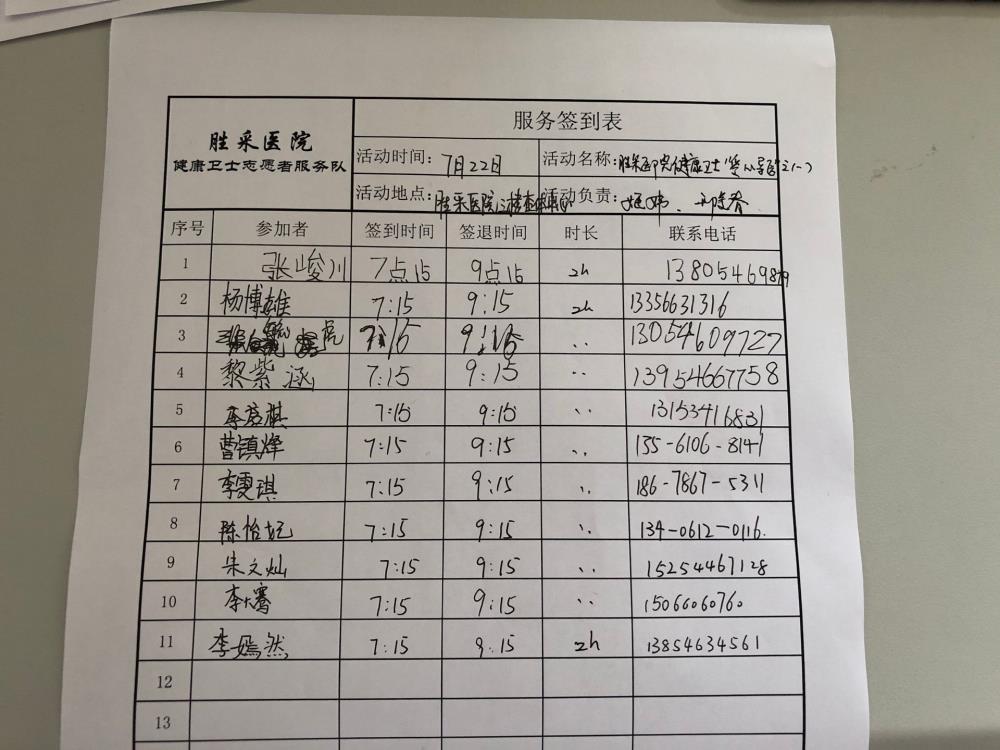 胜采医院
健康卫士志愿者服务队
服务签到表
活动时间：7月22日 活动名称：胜采医院健康卫士
活动地点：胜采医院 活动负责：
序号 参加者 签到时间 签退时间 时长 联系电话
1 张峻川 7点15 9点15 2h 13805469879
2 杨博雄 7:15 9:15 2h 13356631316
3 7:15 9:15 ‥ 13054609727
4 黎紫涵 7:15 9:15 ‥ 13954667758
5 李彦祺 7:15 9:15 ‥ 13153416831
6 曹镇烽 7:15 9:15 ‥ 135-6106-8141
7 李雯琪 7:15 9:15 ‥ 186-7867-5311
8 陈怡妃 7:15 9:15 ‥ 134-0612-0116.
9 朱文灿 7:15 9:15 ‥ 15254467128
10 7:15 9:15 ‥ 15066060760
11 李嫣然 7:15 9:15 2h 13854634561
12
13